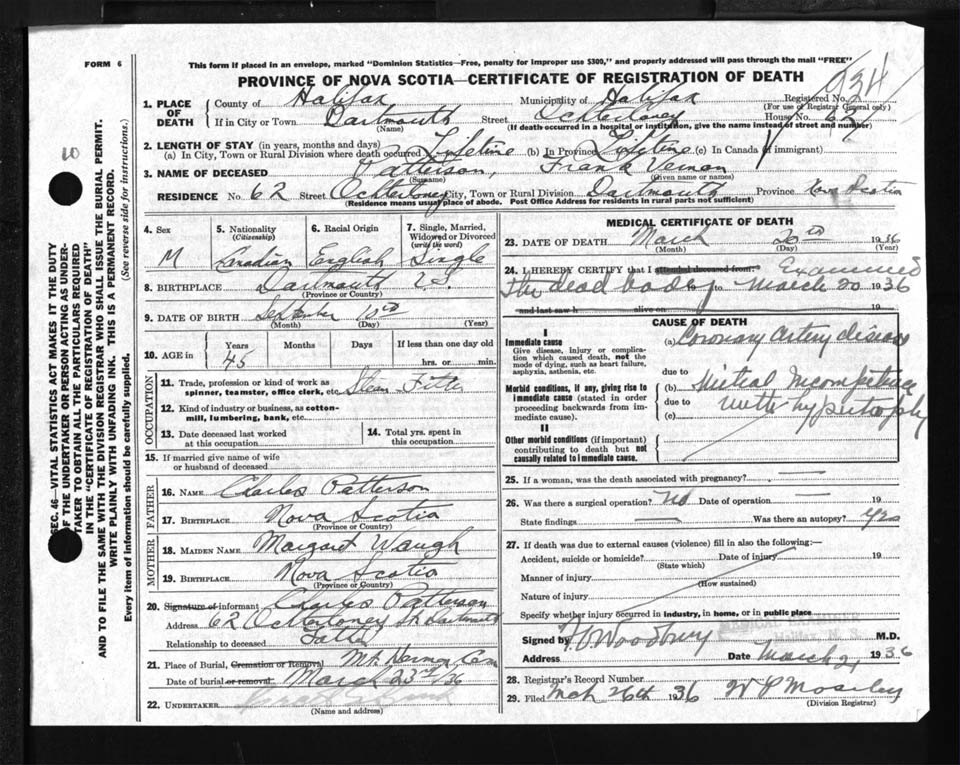 FORM 6
This form if placed in an envelope, marked "Dominion Statistics—Free, penalty for improper use $300," and properly addressed will pass through the mail "FREE"
PROVINCE OF NOVA SCOTIA—CERTIFICATE OF REGISTRATION OF DEATH
934
1. PLACE OF DEATH County of Halifax Municipality of Halifax Registered No.
(For use of Registrar General only)
If in City or Town Dartmouth Street Ochterloney House No. 62
(Name) (If death occurred in a hospital or institution, give the name instead of street and number)
2. LENGTH OF STAY (in years, months and days)
(a) In City, Town or Rural Division where death occurred Lifetime (b) In Province Lifetime (c) In Canada (if immigrant)
3. NAME OF DECEASED Patterson, Frank Vernon
(Surname) (Given name or names)
RESIDENCE No. 62 Street Ochterloney City, Town or Rural Division Dartmouth Province Nova Scotia
(Residence means usual place of abode. Post Office Address for residents in rural parts not sufficient)
4. Sex 5. Nationality (Citizenship) 6. Racial Origin 7. Single, Married, Widowed or Divorced (write the word)
M Canadian English Single
8. BIRTHPLACE Dartmouth
(Province or Country)
9. DATE OF BIRTH September 10th
(Month) (Day) (Year)
10. AGE in Years Months Days If less than one day old
45 hrs. or min.
OCCUPATION
11. Trade, profession or kind of work as spinner, teamster, office clerk, etc. Steam Fitter
12. Kind of industry or business, as cotton-mill, lumbering, bank, etc.
13. Date deceased last worked at this occupation
14. Total yrs. spent in this occupation
15. If married give name of wife or husband of deceased
FATHER
16. NAME Charles Patterson
17. BIRTHPLACE Nova Scotia
(Province or Country)
MOTHER
18. MAIDEN NAME Margaret Waugh
19. BIRTHPLACE Nova Scotia
(Province or Country)
20. Signature of informant Charles Patterson
Address 62 Ochterloney St. Dartmouth
Relationship to deceased Father
21. Place of Burial, Cremation or Removal Mt. Hermon Cem
Date of burial or removal March 23rd /36
22. UNDERTAKER
(Name and address)
MEDICAL CERTIFICATE OF DEATH
23. DATE OF DEATH March 20th 1936
(Month) (Day) (Year)
24. I HEREBY CERTIFY that I attended deceased from: Examined
the dead body to March 20 1936
and last saw h alive on 19
CAUSE OF DEATH
I
Immediate cause
Give disease, injury or complication which caused death, not the mode of dying, such as heart failure, asphyxia, asthenia, etc.
(a) Coronary artery disease
due to
Morbid conditions, if any, giving rise to immediate cause (stated in order proceeding backwards from immediate cause).
(b) Mitral Incompetence
due to with hypertrophy
(c)
II
Other morbid conditions (if important) contributing to death but not causally related to immediate cause.
25. If a woman, was the death associated with pregnancy? —
26. Was there a surgical operation? no Date of operation — 19
State findings — Was there an autopsy? yes
27. If death was due to external causes (violence) fill in also the following:—
Accident, suicide or homicide? Date of injury 19
(State which)
Manner of injury
(How sustained)
Nature of injury
Specify whether injury occurred in industry, in home, or in public place
MEDICAL EXAMINER
Halifax, N. S.
Signed by Woodbury M.D.
Address Date March 21 1936
28. Registrar's Record Number
29. Filed Mch 26th 1936 W P Moseley
(Division Registrar)
SEC. 46—VITAL STATISTICS ACT MAKES IT THE DUTY
OF THE UNDERTAKER OR PERSON ACTING AS UNDER-
TAKER TO OBTAIN ALL THE PARTICULARS REQUIRED
IN THE "CERTIFICATE OF REGISTRATION OF DEATH"
AND TO FILE THE SAME WITH THE DIVISION REGISTRAR WHO SHALL ISSUE THE BURIAL PERMIT.
WRITE PLAINLY WITH UNFADING INK. THIS IS A PERMANENT RECORD.
Every item of information should be carefully supplied. (See reverse side for instructions.)